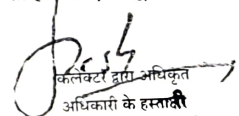 कलेक्टर द्वारा अधिकृत
अधिकारी के हस्ताक्षरी